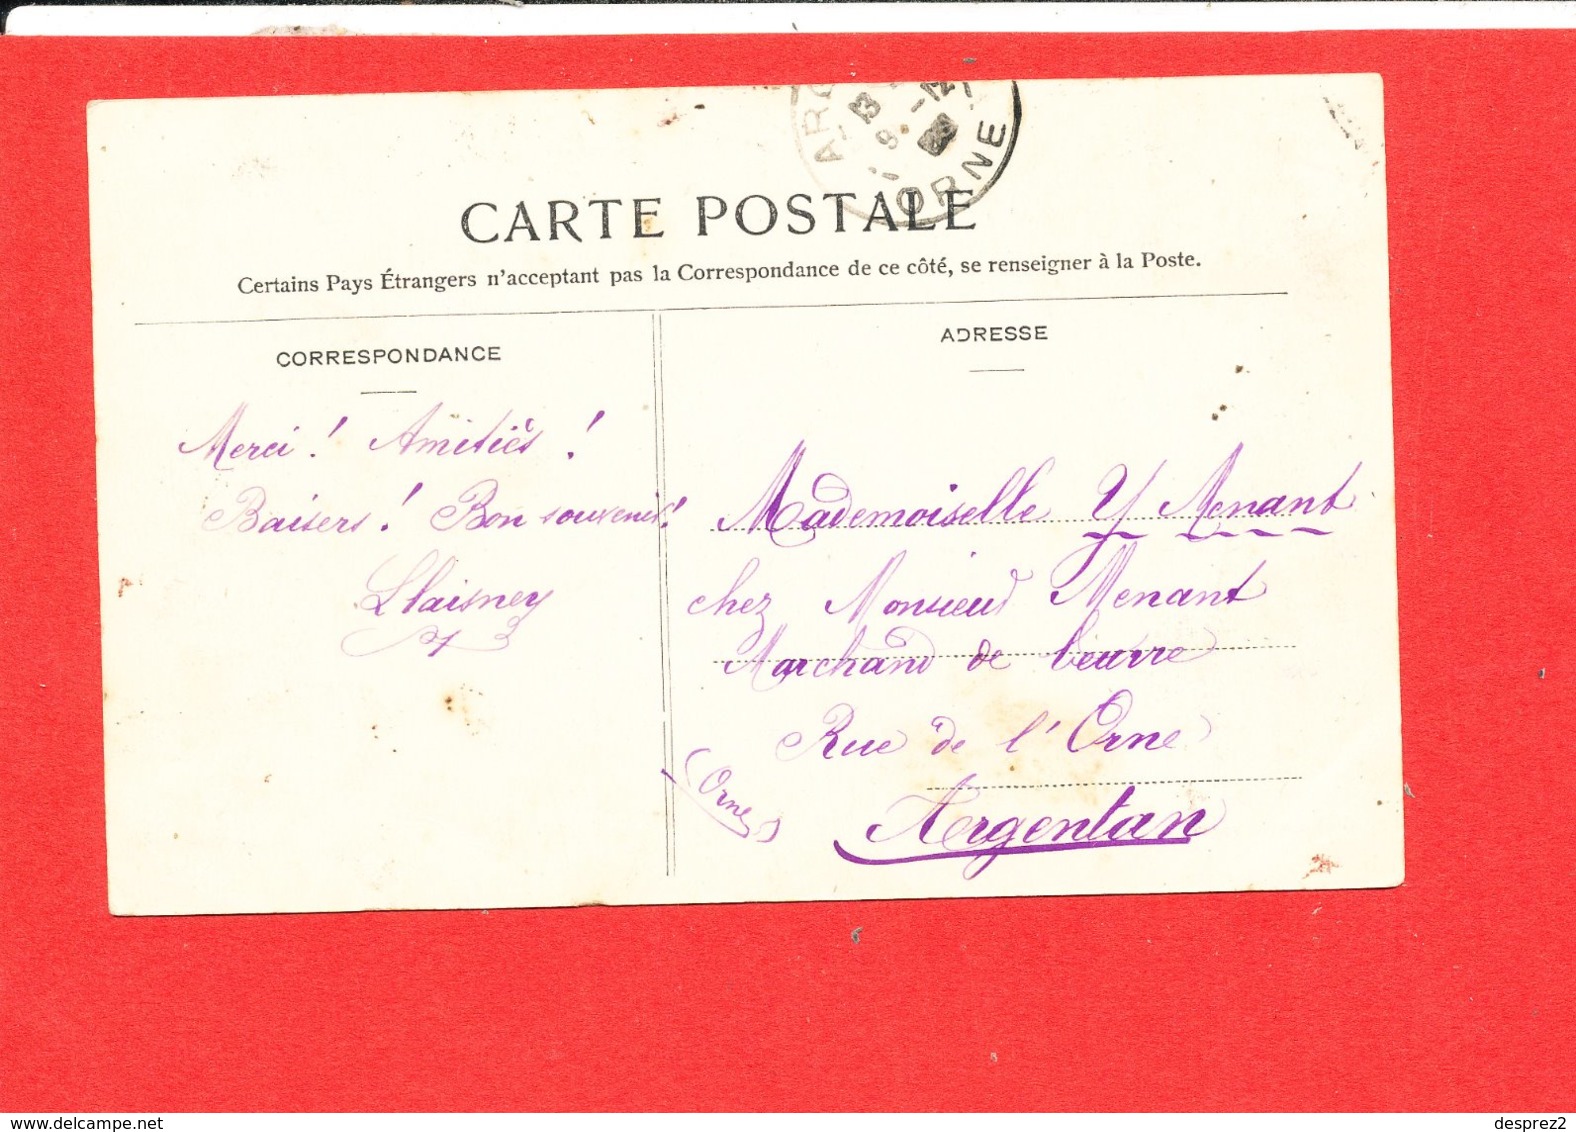 ORNE
CARTE POSTALE
Certains Pays Étrangers n'acceptant pas la Correspondance de ce côté, se renseigner à la Poste.
CORRESPONDANCE
Merci ! Amitiés !
Baisers ! Bon souvenir !
ADRESSE
Mademoiselle Y Menant
chez Monsieur Menant
Marchand de beurre
Rue de l'Orne
Argentan
(Orne)
www.delcampe.net
desprez2